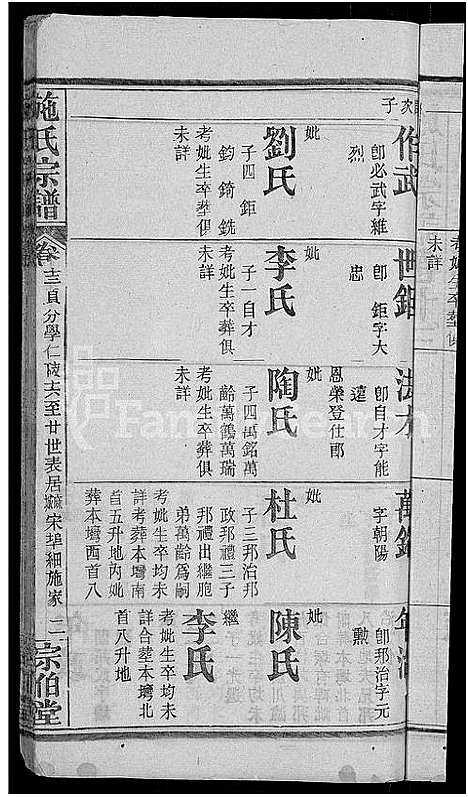 次子
作武
即必武字維
烈
妣
劉氏
子四鉅
鈞錡銑
考妣生卒塟俱
未詳
世鉅
即鉅字大
忠
妣
李氏
子一自才
考妣生卒葬俱
未詳
法才
即自才字能
遠
恩榮登仕郎
妣
陶氏
子四萬銘萬
齡萬鶴萬瑞
考妣生卒葬俱
未詳
萬銘
字朝陽
妣
杜氏
子三邦治邦
政邦禮三子
邦禮出繼胞
弟萬齡為嗣
考妣生卒均未
詳考葬本塆南
首五升地內妣
葬本塆西首八
即邦治字元
勲
妣
陳氏
繼
李氏
考妣生卒均未
詳合塟本塆北
首八升地
施氏宗譜
卷十三貞分學仁陵六至廿世表居麻城宋埠細施家
宗伯堂
考妣生卒塟俱
未詳